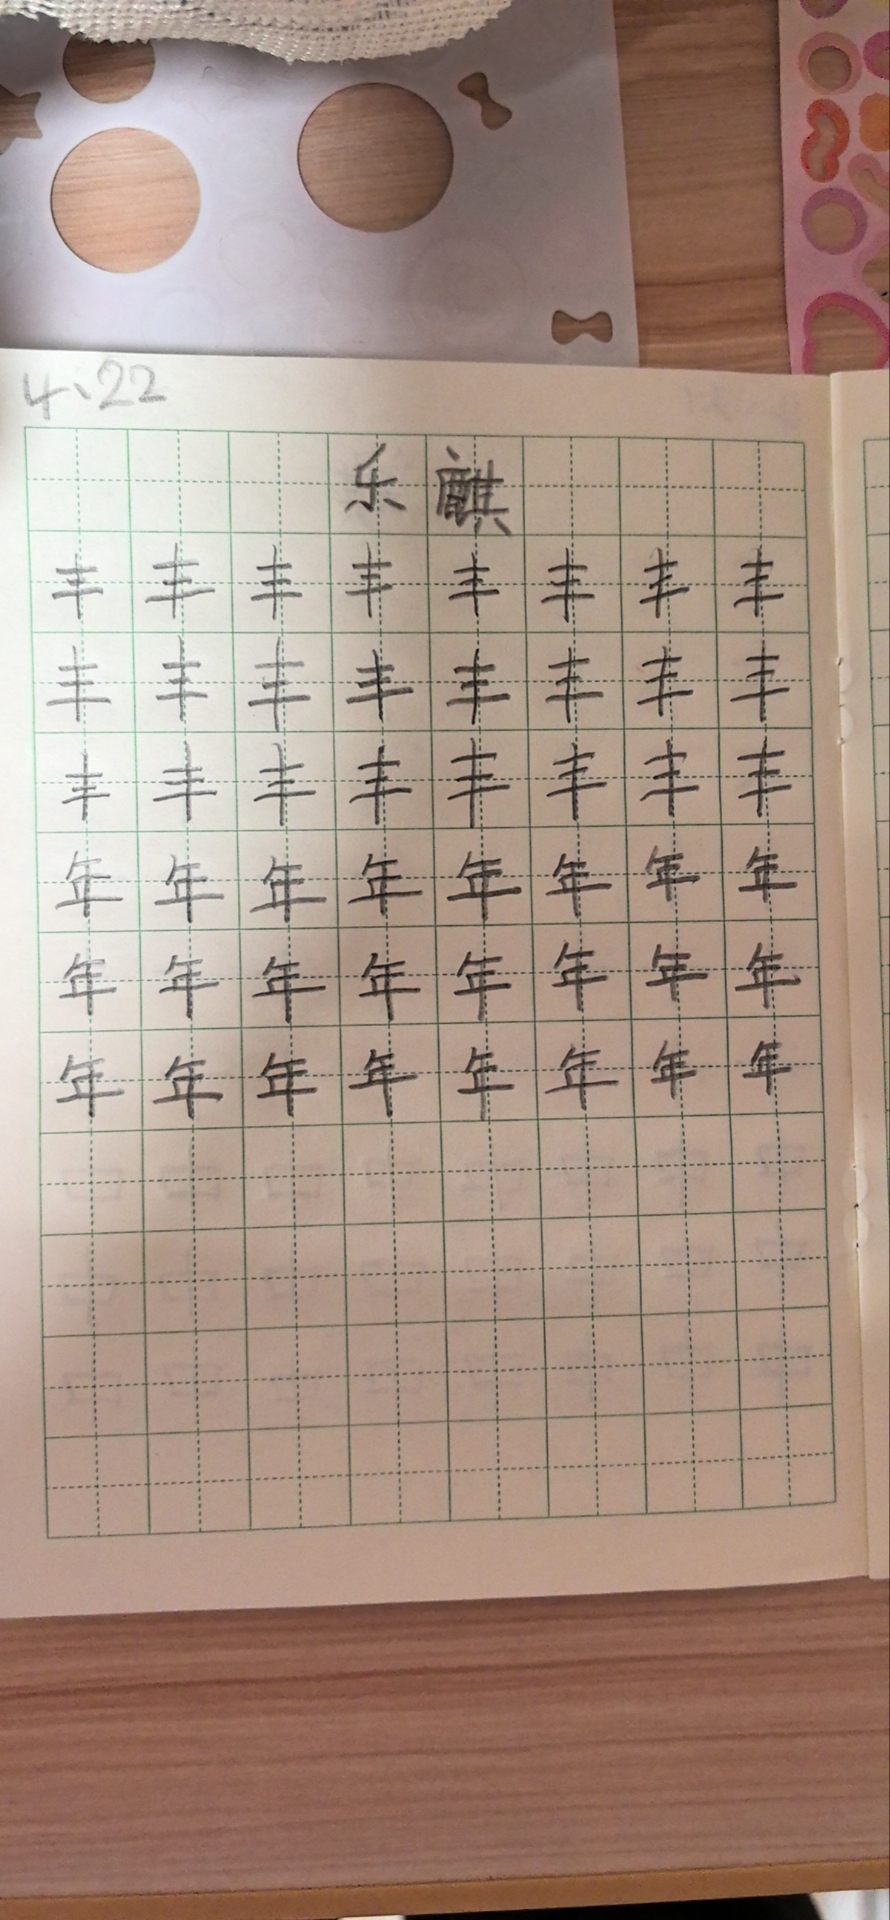 4、22
乐麒
丰丰丰丰丰丰丰丰
丰丰丰丰丰丰丰丰
丰丰丰丰丰丰丰丰
年年年年年年年年
年年年年年年年年
年年年年年年年年